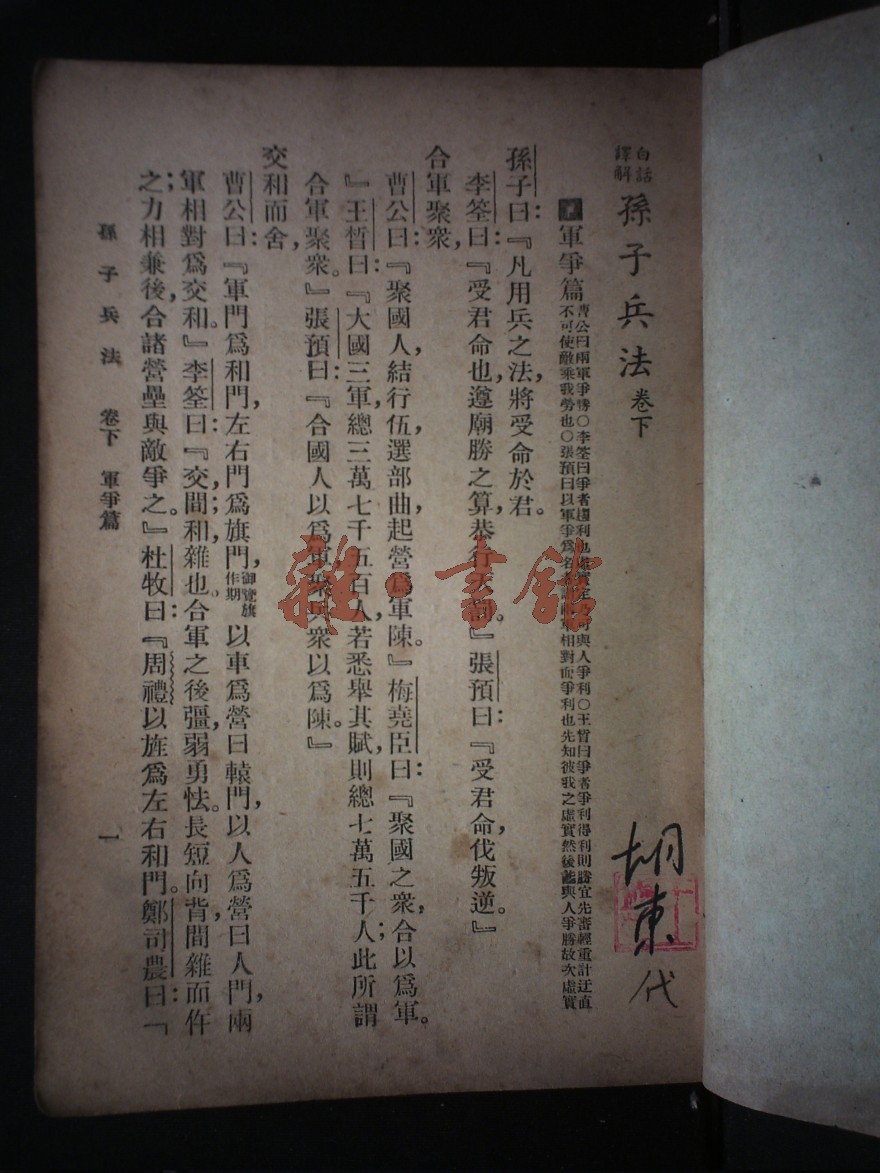 白話譯解 孫子兵法 卷下
軍爭篇 曹公曰兩軍爭勝○李筌曰爭者趨利也虛實定乃可與人爭利○王晳曰爭者爭利得利則勝宜先審輕重計迂直
不可使敵乘我勞也○張預曰以軍爭爲名者謂兩軍相對而爭利也先知彼我之虛實然後能與人爭勝故次虛實
孫子曰：『凡用兵之法，將受命於君。
李筌曰：『受君命也，遵廟勝之算，恭行天罰。』張預曰：『受君命，伐叛逆。』
合軍聚衆，
曹公曰：『聚國人，結行伍，選部曲，起營爲軍陳。』梅堯臣曰：『聚國之衆，合以爲軍。
』王晳曰：『大國三軍，總三萬七千五百人，若悉舉其賦，則總七萬五千人；此所謂
合軍聚衆。』張預曰：『合國人以爲軍，聚兵衆以爲陳。』
交和而舍，
曹公曰：『軍門爲和門，左右門爲旗門，御覽旗作期以車爲營曰轅門，以人爲營曰人門，兩
軍相對爲交和。』李筌曰：『交，間；和，雜也。合軍之後，彊弱勇怯。長短向背，間雜而仵
之；力相兼後，合諸營壘與敵爭之。』杜牧曰：『周禮以旌爲左右和門。鄭司農曰：『
孫子兵法 卷下 軍爭篇 一
雜·書館
胡東代